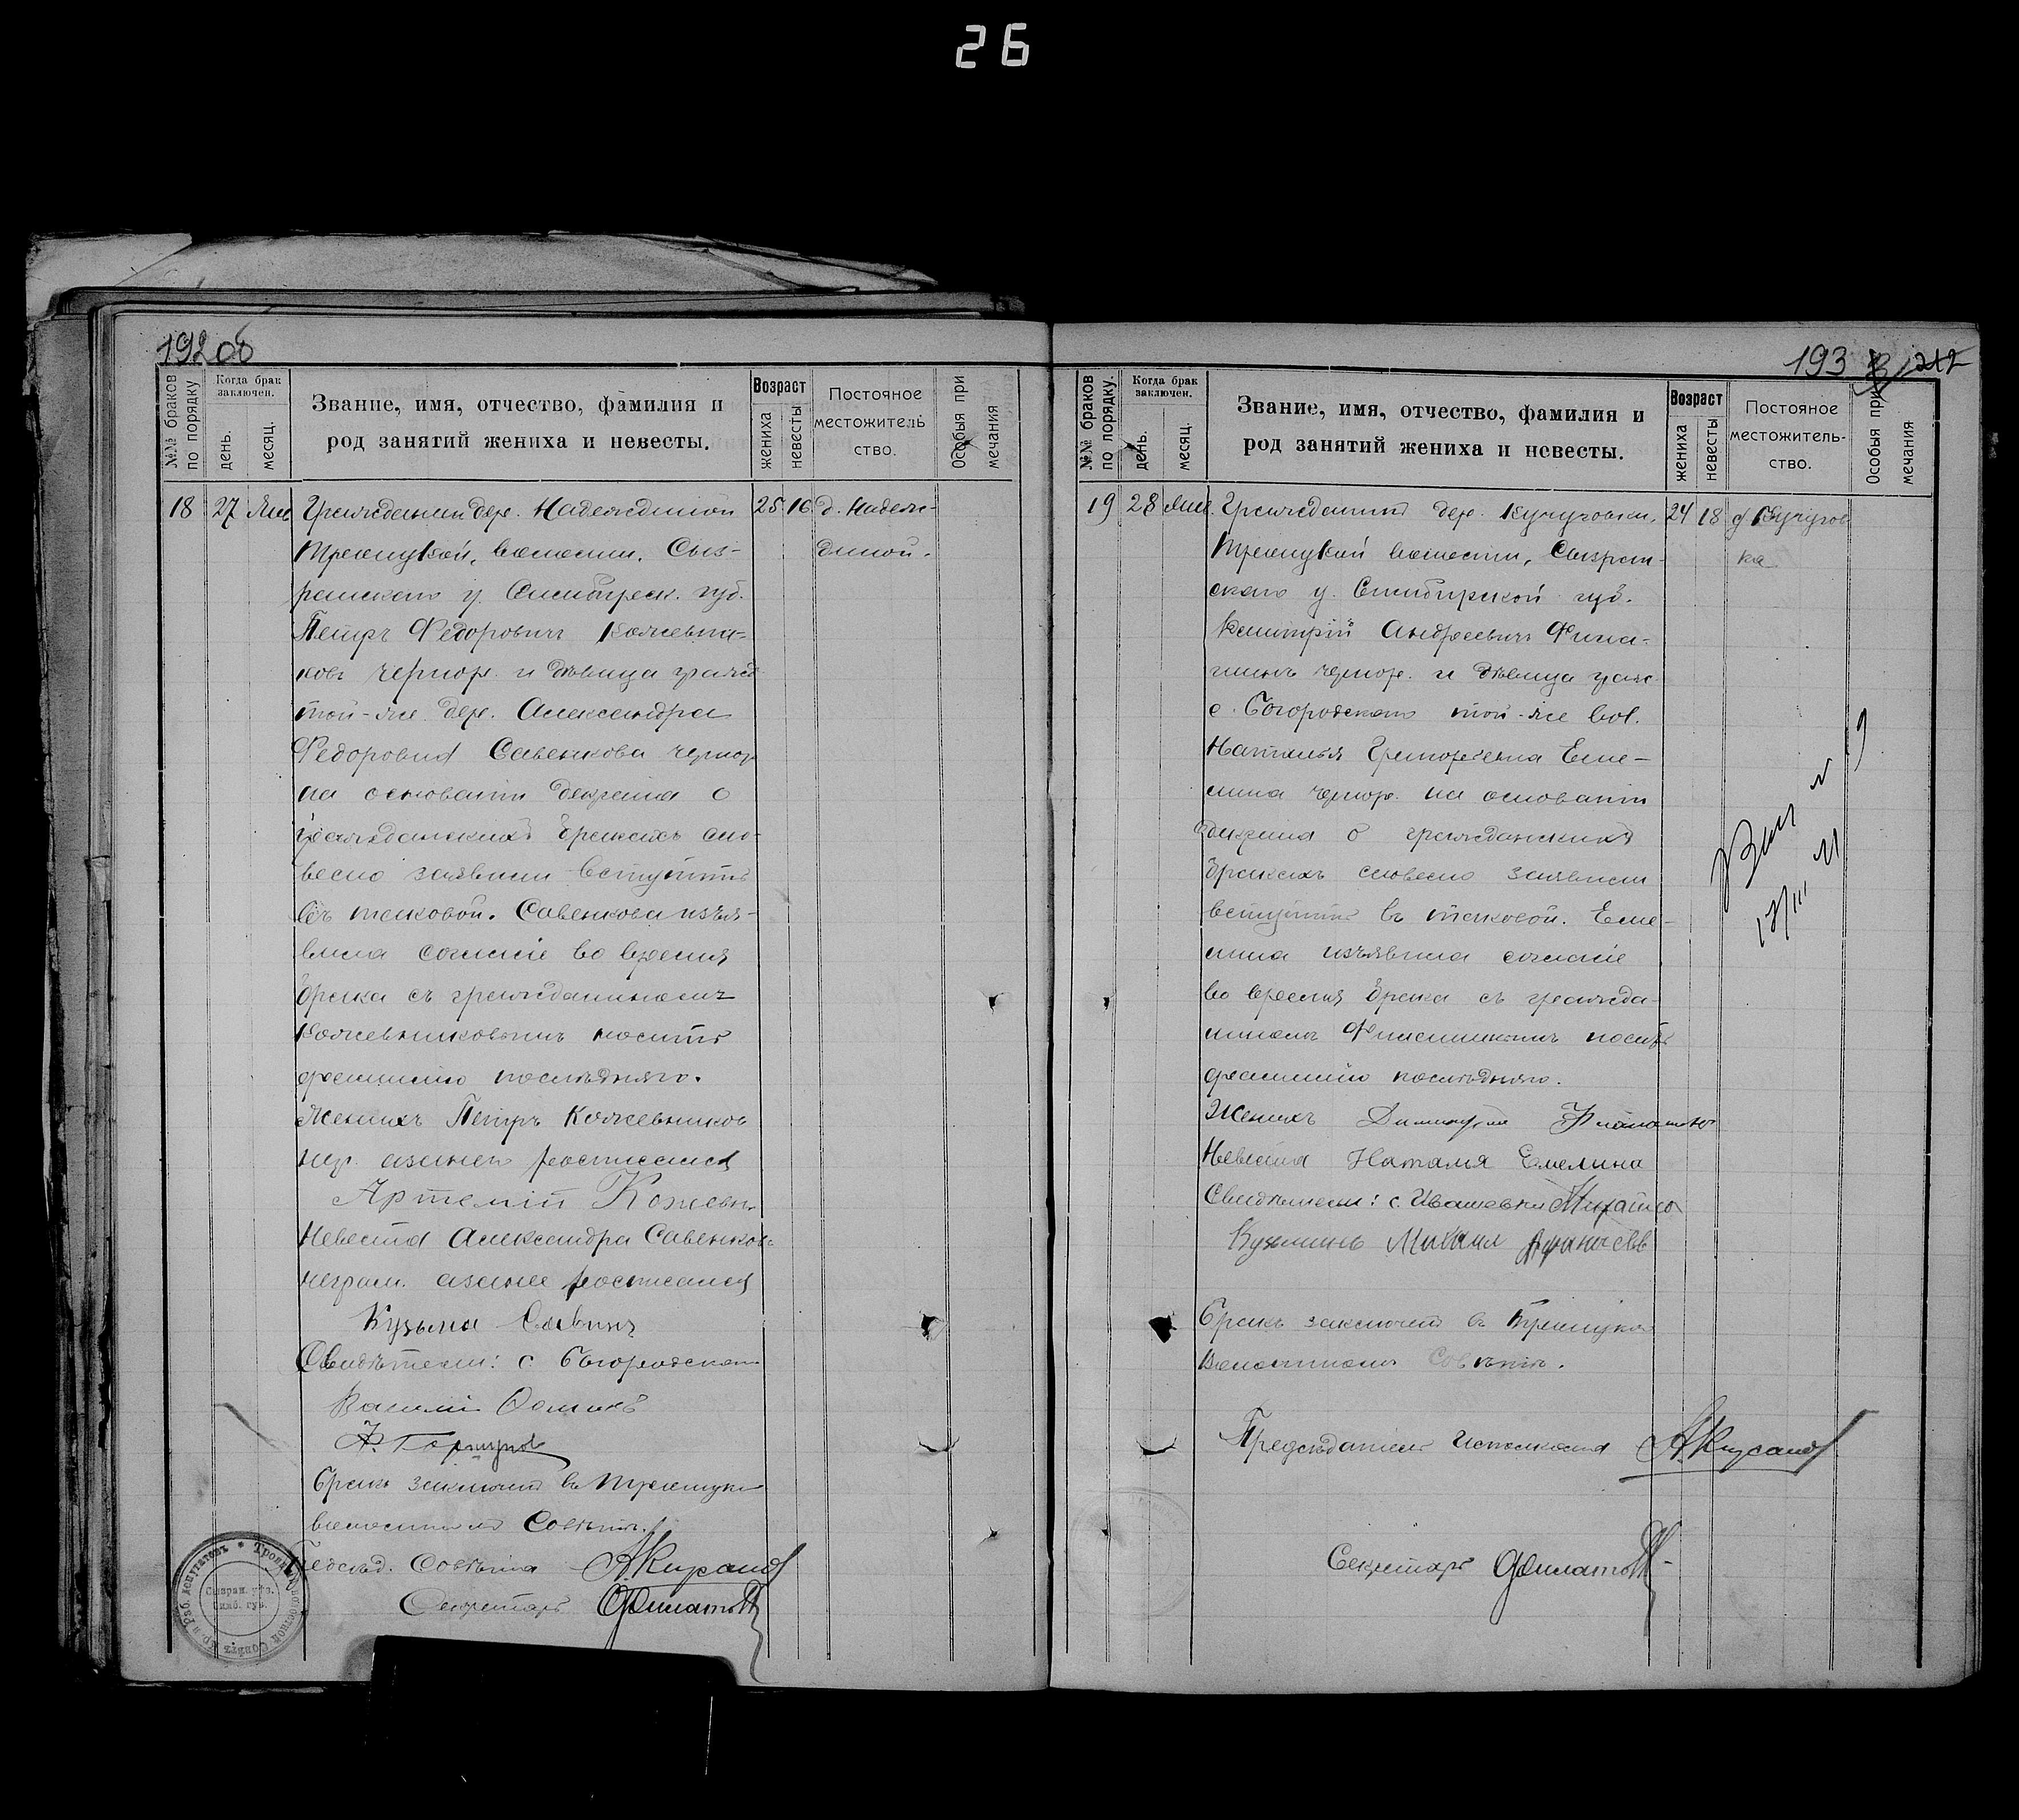 26
192 об
№№ браков по порядку
Когда брак заключен.
день.
месяц.
Звание, имя, отчество, фамилия и
род занятий жениха и невесты.
Возраст
жениха
невесты
Постоянное
местожитель
ство.
Особыя при
мечания
18 27 Янв Гражданин дер. Надеждиной 25 16 д. Надеж-
Троицкой, волости, Сыз- диной.
ранского у. Симбирск. губ.
Петръ Федоровичъ Кожевни-
ковъ чернор. и девица гражд
той-же дер. Александра
Федоровна Савенкова чернор
на основанiи декрета о
гражданскихъ бракахъ сло-
весно заявили вступить
въ таковой. Савенкова изъя-
вила согласiе во время
брака съ гражданиномъ
Кожевниковымъ носить
фамилiю последняго.
Женихъ Петръ Кожевников
нгр. а за него росписался
Артемiй Кожевн
Невеста Александра Савенков
неграм. а за нее росписался
Кузьма Савинъ
Свидѣтели: с Богородскаго
Василiй
Ф. Горшунов
Бракъ заключенъ въ Троицком
волостномъ Совѣтѣ.
Председ. Совѣта А. Кирсанов
Секретарь Филатов
193 212
№№ браков по порядку.
Когда брак заключен.
день.
месяц.
Звание, имя, отчество, фамилия и
род занятий жениха и невесты.
Возраст
жениха
невесты
Постоянное
местожитель-
ство.
Особыя при
мечания
19 28 Янв. Гражданинъ дер. Кучуговки, 24 18 д. Кучугов
Троицкой волости, Сызран- ка
скаго у. Симбирской губ.
Димитрiй Андреевичъ
чернор. и дѣвица граж
с. Богородскаго той-же вол.
Наталья Григорьевна Еме-
лина чернор. на основанiи
декрета о гражданскихъ
бракахъ словесно заявили
вступить въ таковой. Еме-
лина изъявила согласiе
во время брака съ гражда-
ниномъ носить
фамилiю послѣдняго.
Женихъ Димитрiй
Невеста Наталя Емелина
Свидѣтели: с. Ивашевки Михаилъ
Кузьминъ Михаил Афанасьев
Бракъ заключенъ въ Троицком
Волостномъ Совѣтѣ.
Предсѣдатель Исполкома А. Кирсанов
Секретарь Филатов